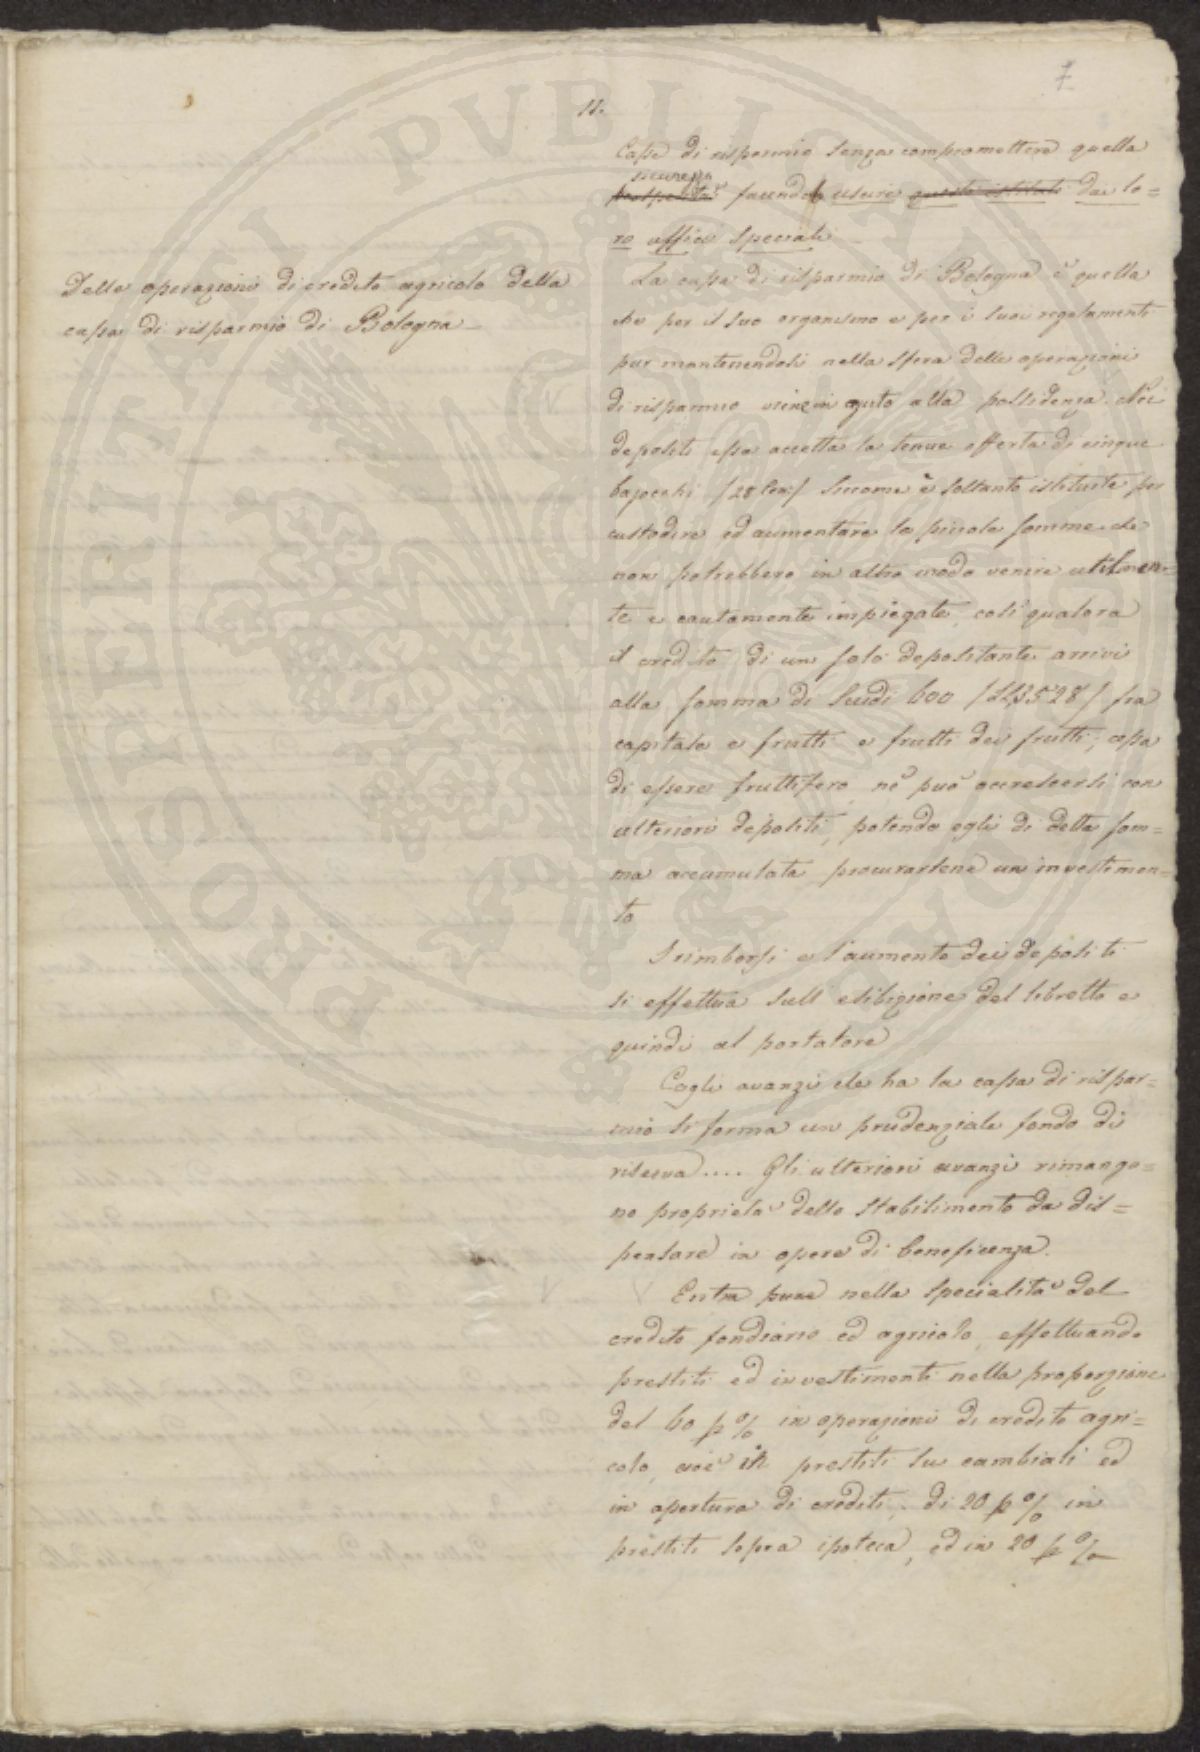 7
11.
Casse di risparmio senza compromettere quella
sicurezza
prosperità facendole uscire queste istituti dai lo=
ro uffici speciali
Delle operazioni di credito agricolo della
cassa di risparmio di Bologna
La cassa di risparmio di Bologna è quella
che per il suo organismo e per i suoi regolamenti
pur mantenendosi nella sfera delle operazioni
di risparmio viene in ajuto alla possidenza. Nei
depositi essa accetta la tenue offerta di cinque
bajocchi /28 Cent/ Siccome è soltanto istituita per
custodire ed aumentare le piccole somme che
non potrebbero in altro modo venire utilmen=
te e cautamente impiegate, così qualora
il credito di un solo depositante arrivi
alla somma di Scudi 600 /LL3528/ fra
capitale e frutti e frutti dei frutti, cessa
di essere fruttifero, nè può accrescersi con
ulteriori depositi, potendo egli di detta som=
ma accumulata procurarsene un investimen=
to
I rimborsi e l'aumento dei depositi
si effettua sull'esibizione del libretto e
quindi al portatore
Cogli avanzi che ha la cassa di rispar=
mio si forma un prudenziale fondo di
riserva.... Gli ulteriori avanzi rimango=
no proprietà dello stabilimento da dis=
pensare in opere di beneficenza.
Entra pure nella specialità del
credito fondiario ed agricolo, effettuando
prestiti ed investimenti nella proporzione
del 60 p % in operazioni di credito agri=
colo, cioè in prestiti su cambiali ed
in apertura di crediti, di 20 p % in
prestiti sopra ipoteca, ed in 20 p %
PROSPERITATI PVBLICAE